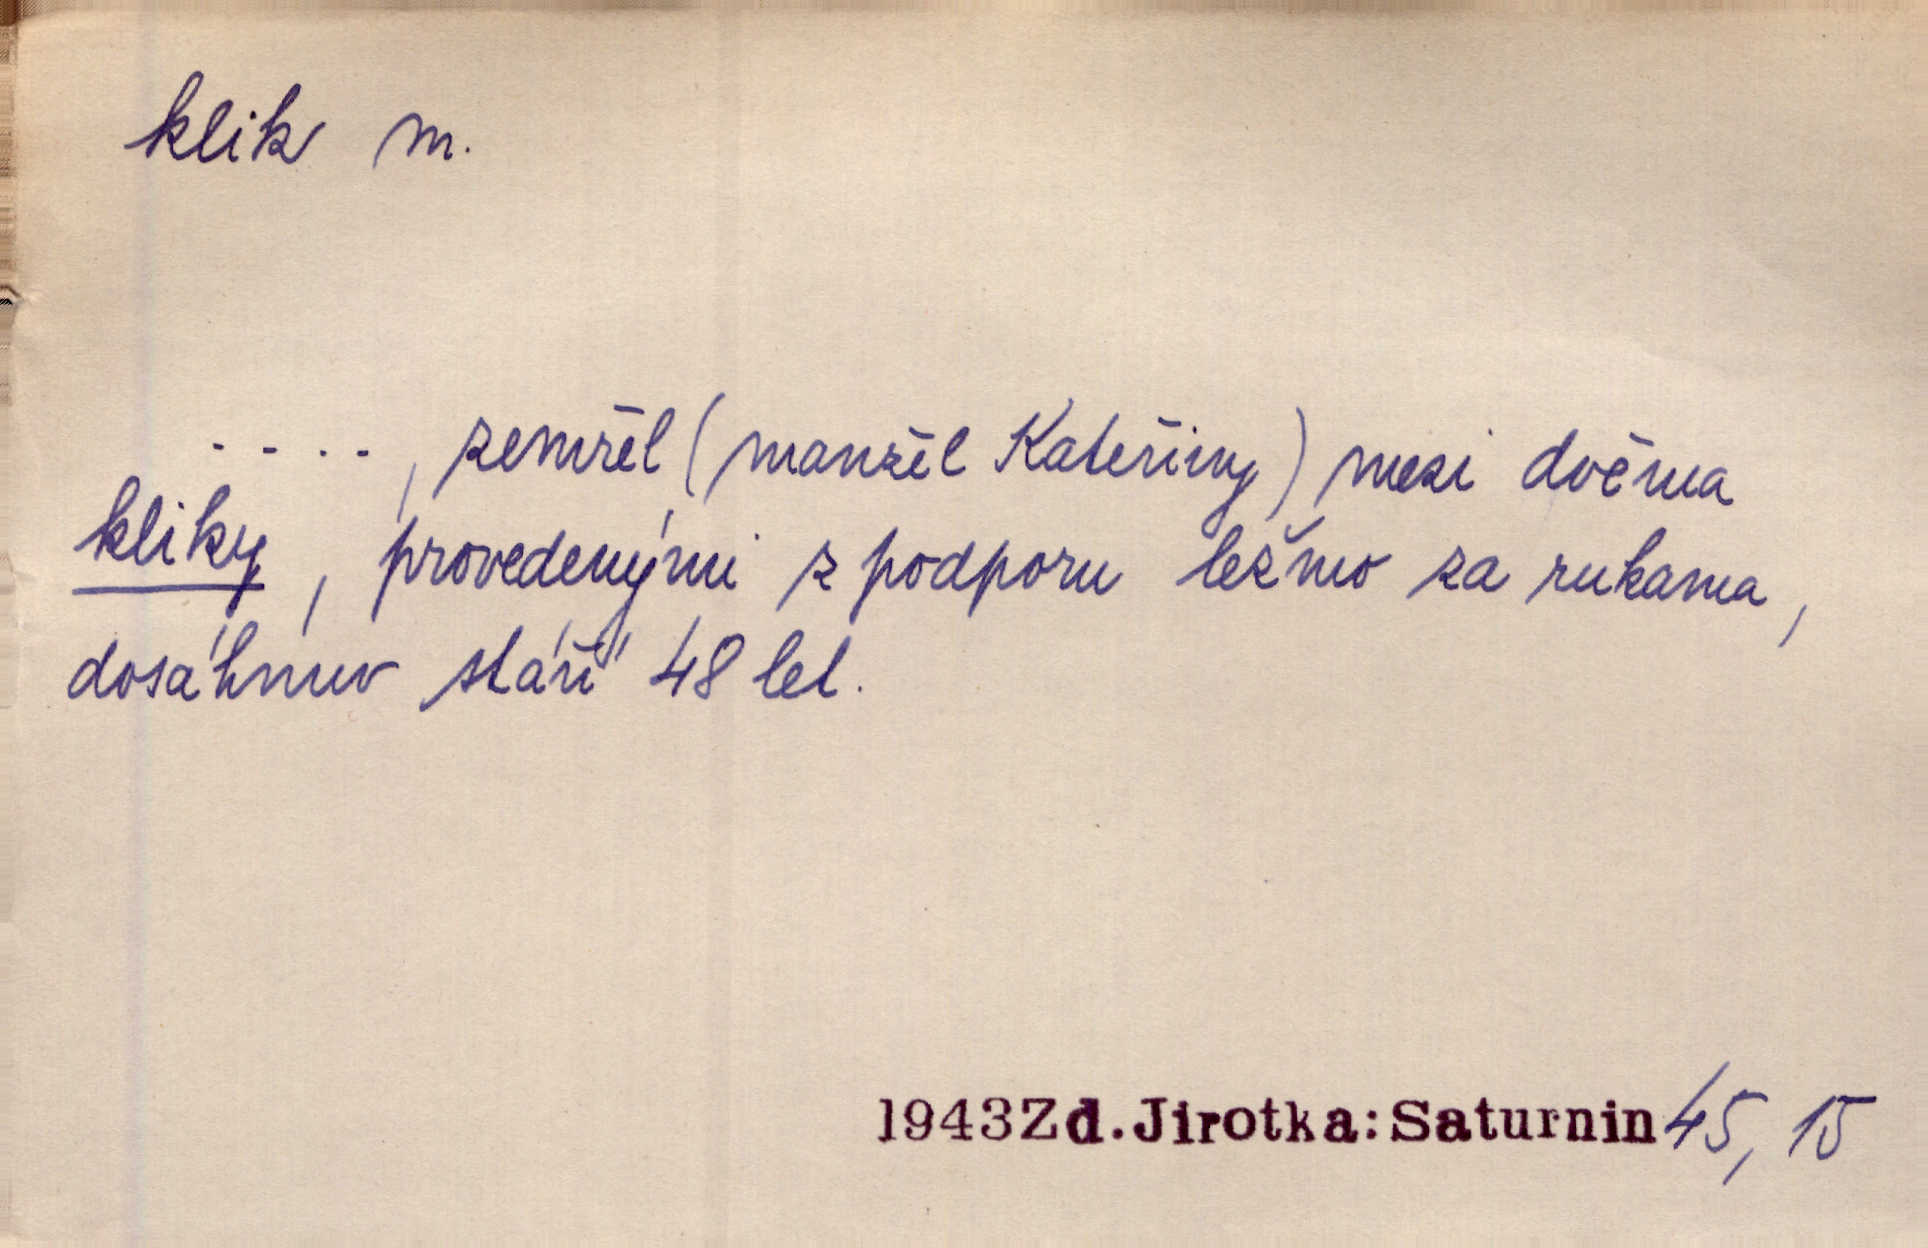 klik m.
...., zemřel (manžel Kateřiny) mezi dvěma
kliky, provedenými z podporu ležmo za rukama,
dosáhnuv stáří 48 let.
1943 Zd. Jirotka: Saturnin 45, 15